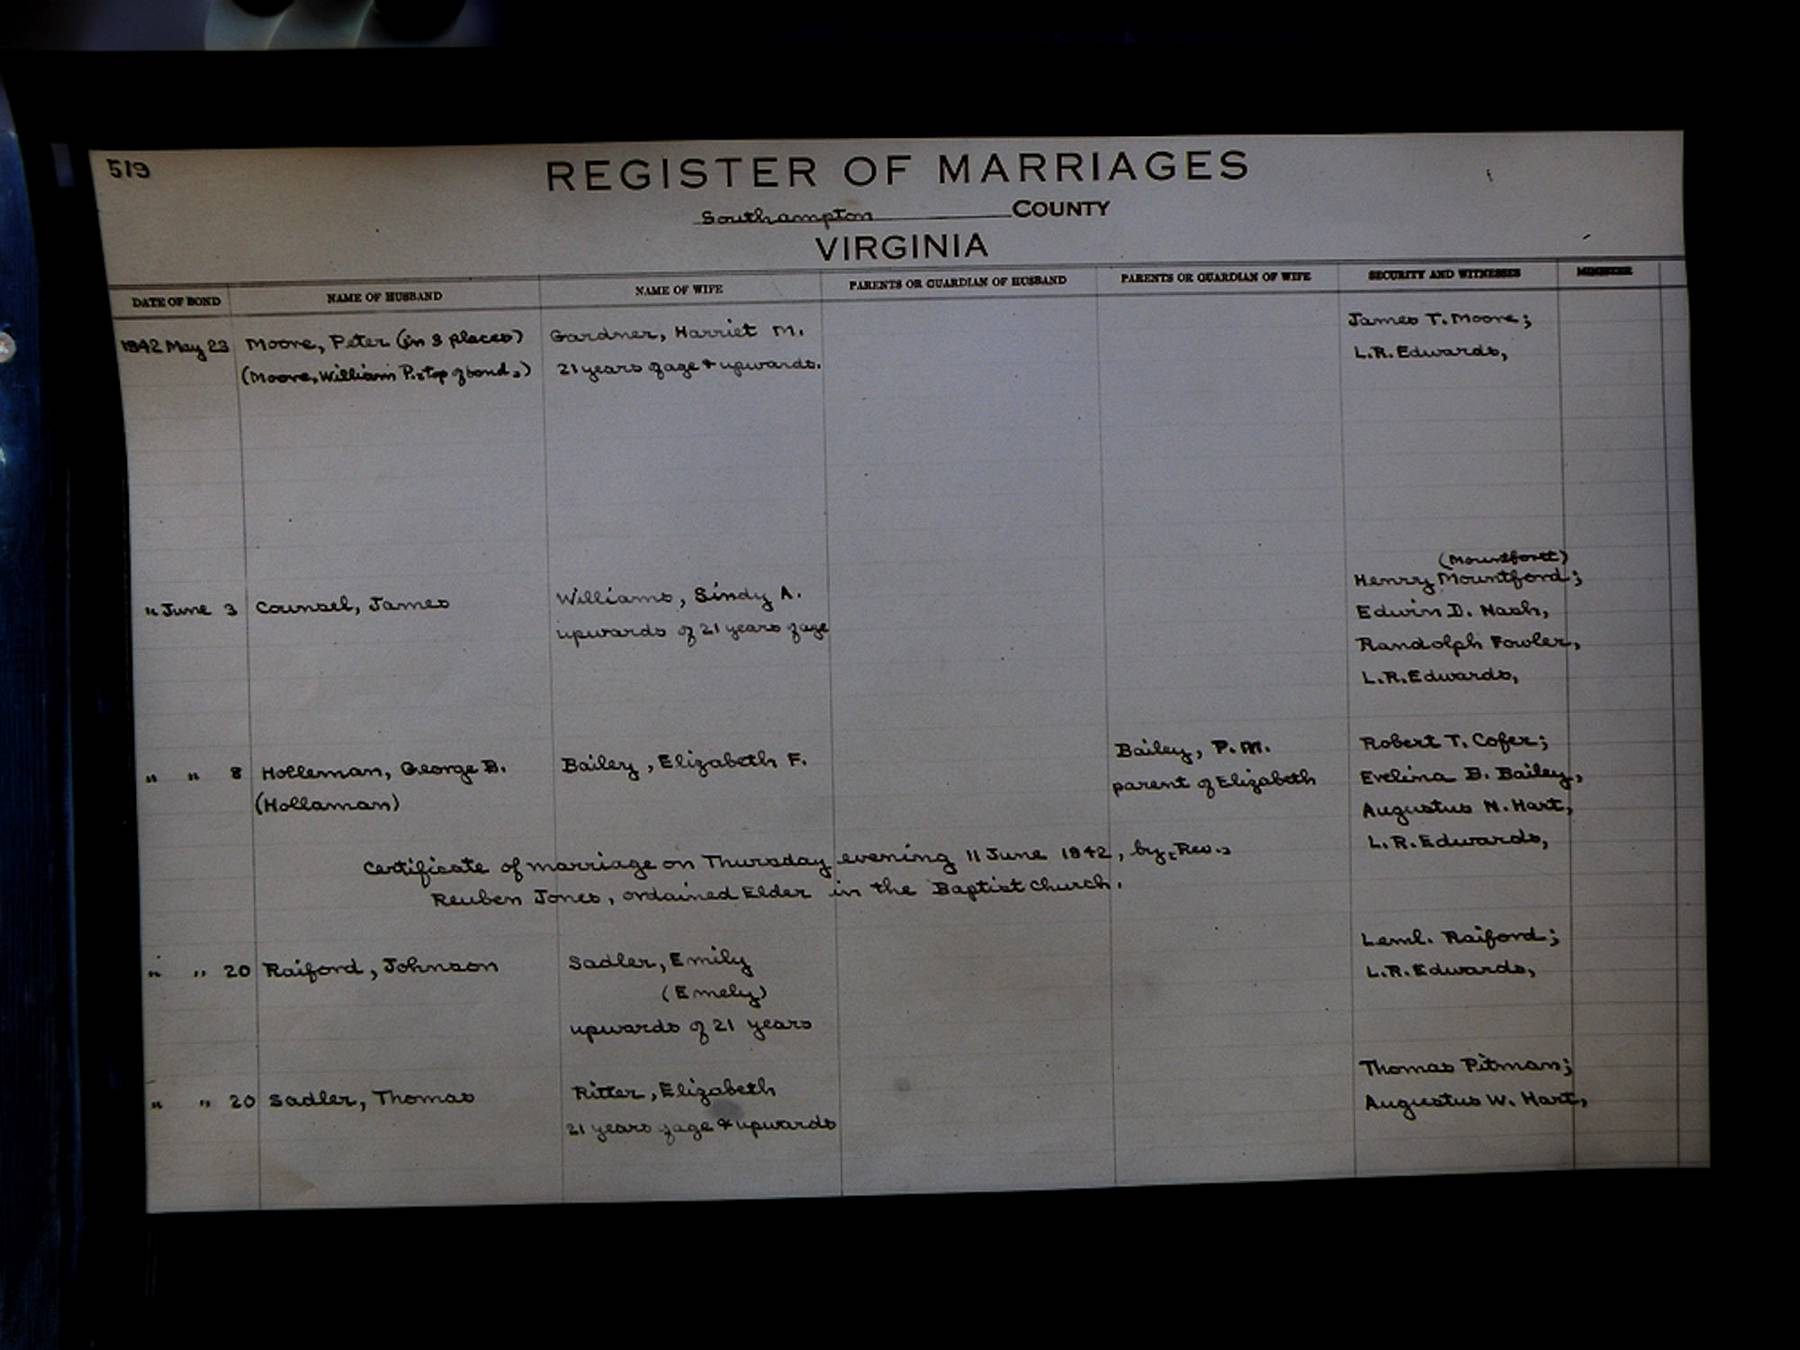 519
REGISTER OF MARRIAGES
Southampton COUNTY
VIRGINIA
DATE OF BOND NAME OF HUSBAND NAME OF WIFE PARENTS OR GUARDIAN OF HUSBAND PARENTS OR GUARDIAN OF WIFE SECURITY AND WITNESSES MINISTER
1842 May 23 Moore, Peter (in 3 places) Gardner, Harriet M. James T. Moore;
(Moore, William P. top of bond.) 21 years of age & upwards. L.R. Edwards,
(Mountfortt)
" June 3 Counsel, James Williams, Sindy A. Henry Mountford;
upwards of 21 years of age Edwin D. Nash,
Randolph Fowler,
L.R. Edwards,
" " 8 Holleman, George B. Bailey, Elizabeth F. Bailey, P. M. Robert T. Cofer;
(Hollaman) parent of Elizabeth Evelina B. Bailey,
Augustus N. Hart,
L.R. Edwards,
Certificate of marriage on Thursday evening 11 June 1842, by Rev.
Reuben Jones, ordained Elder in the Baptist Church.
" " 20 Raiford, Johnson Sadler, Emily Leml. Raiford;
(Emely) L.R. Edwards,
upwards of 21 years
" " 20 Sadler, Thomas Ritter, Elizabeth Thomas Pitman;
21 years of age & upwards Augustus W. Hart,